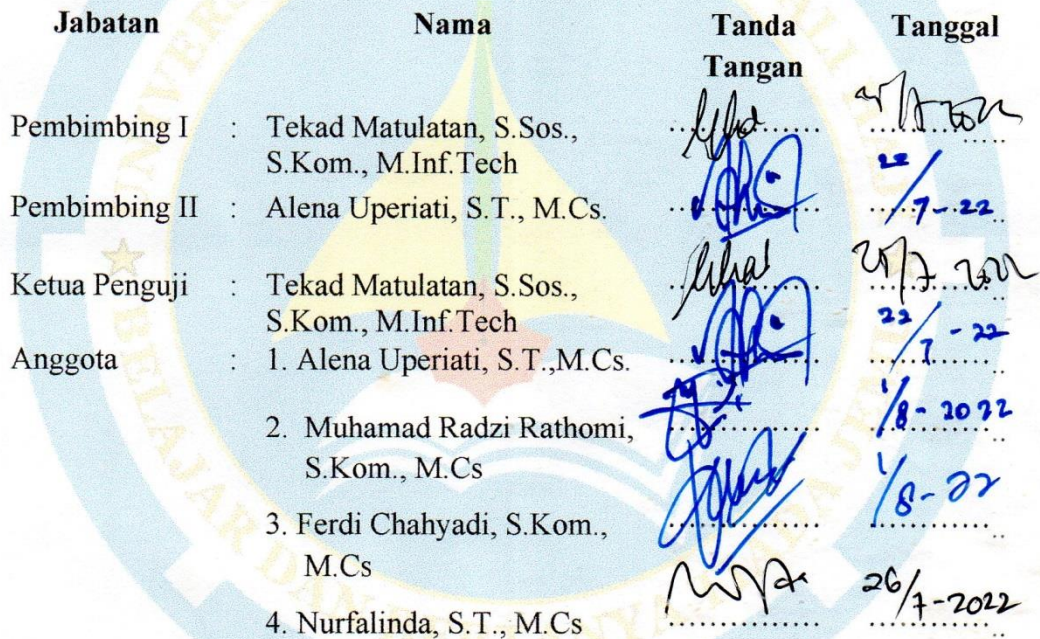 Jabatan Nama Tanda Tangan Tanggal
Pembimbing I : Tekad Matulatan, S.Sos.,
S.Kom., M.Inf.Tech
22/7-22
Pembimbing II : Alena Uperiati, S.T., M.Cs.
Ketua Penguji : Tekad Matulatan, S.Sos.,
S.Kom., M.Inf.Tech
22/7-22
Anggota : 1. Alena Uperiati, S.T.,M.Cs.
2. Muhamad Radzi Rathomi, 1/8-2022
S.Kom., M.Cs
1/8-22
3. Ferdi Chahyadi, S.Kom.,
M.Cs
26/7-2022
4. Nurfalinda, S.T., M.Cs
BELAJAR DAN